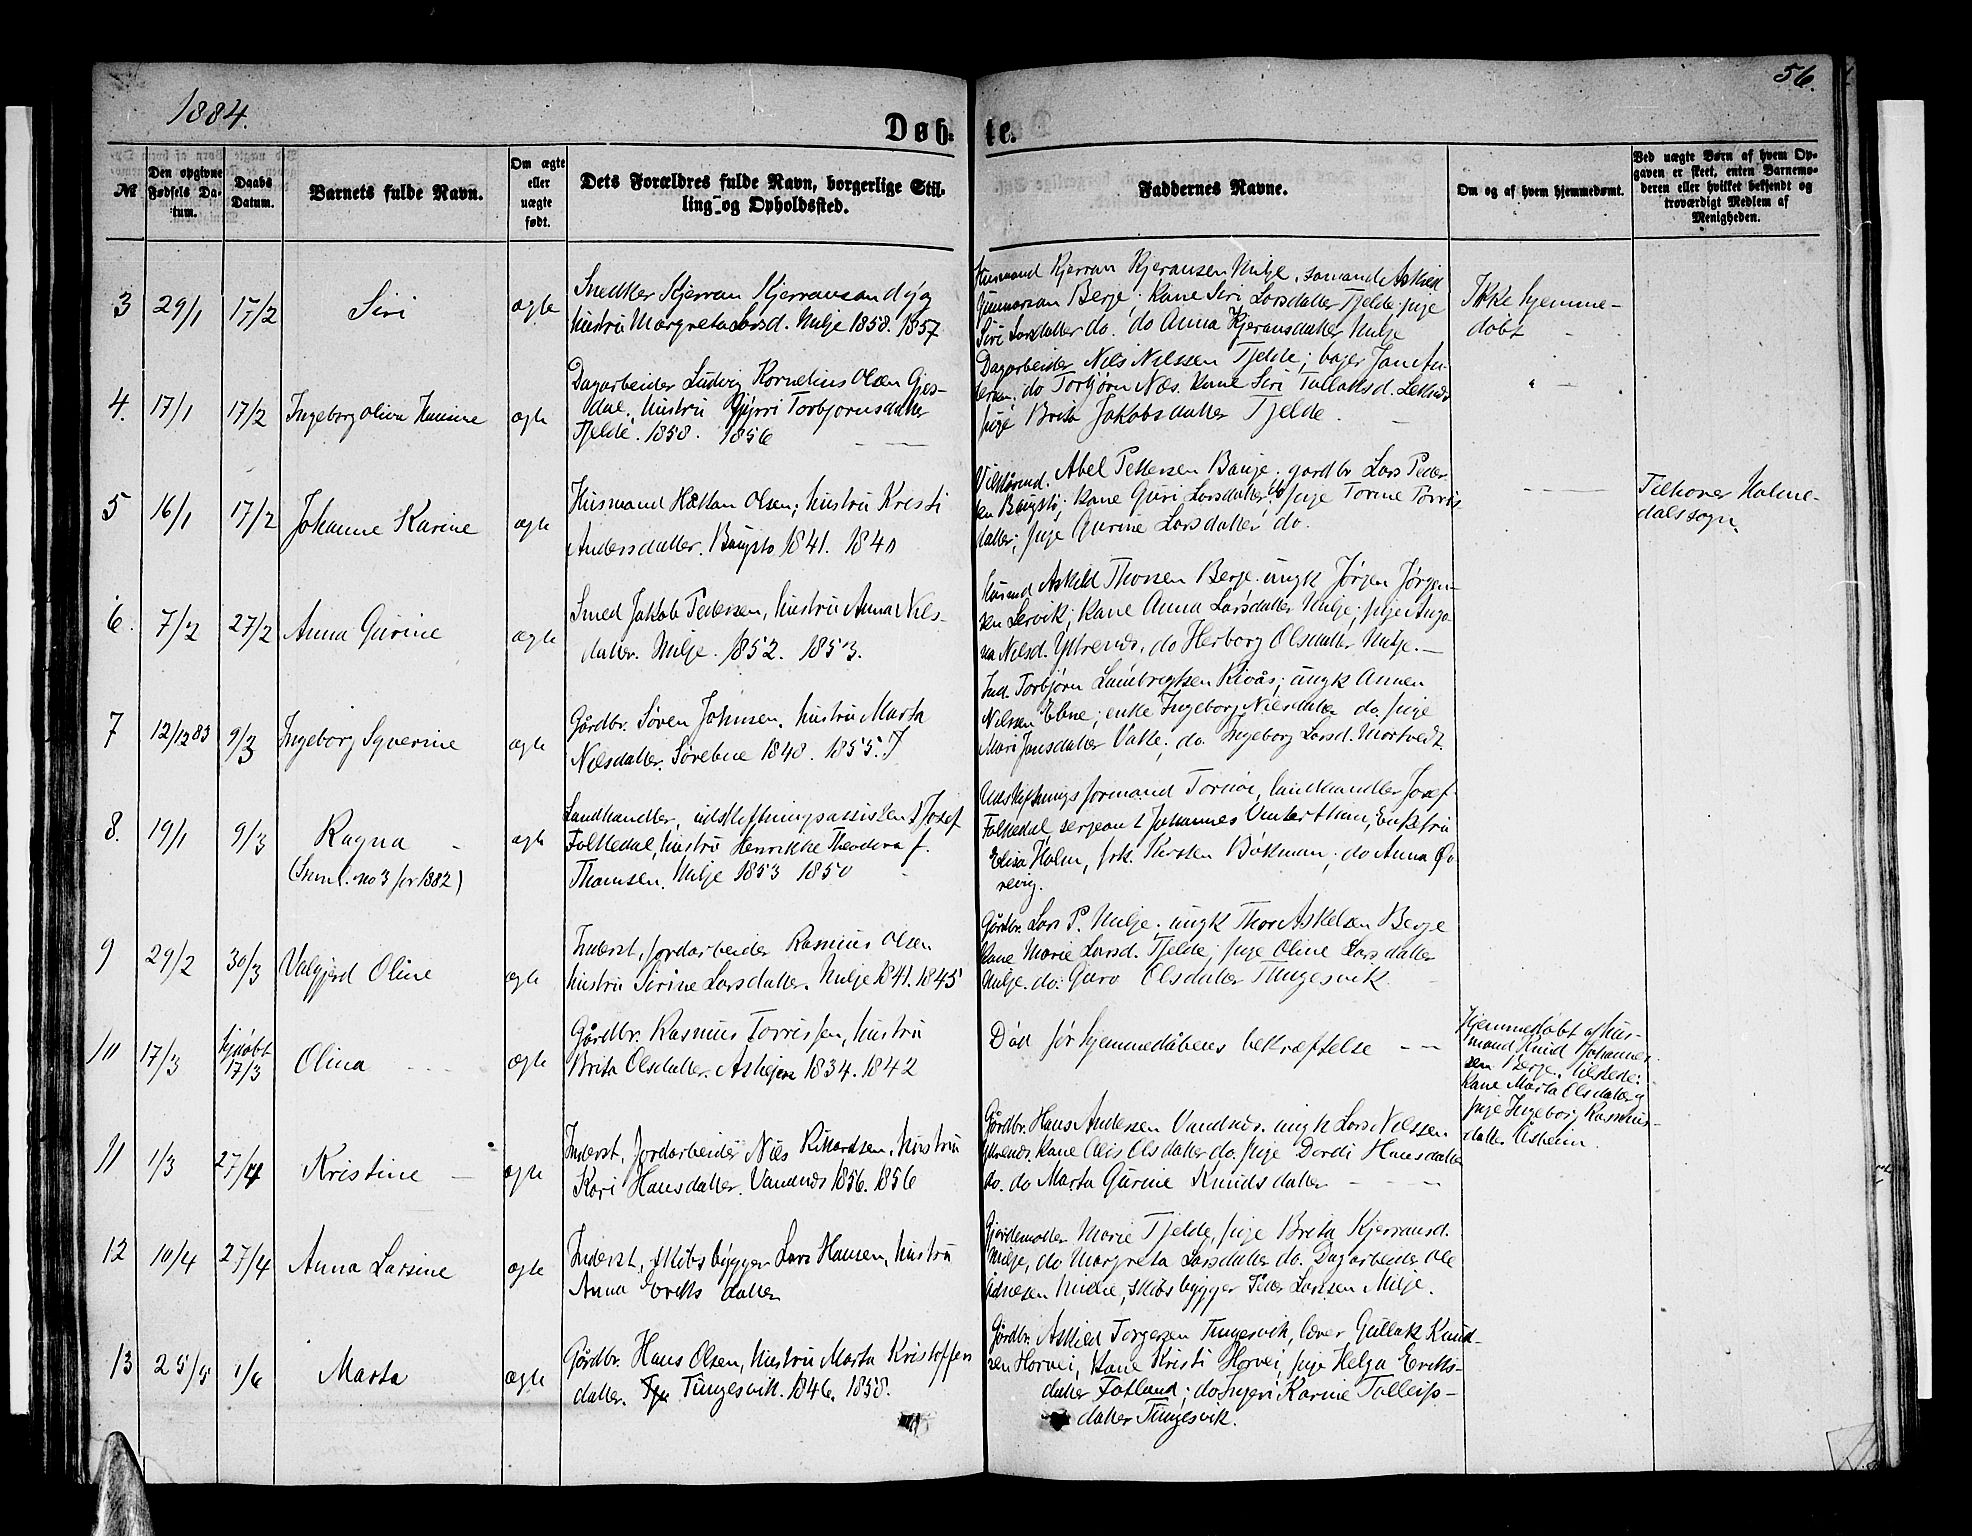 1884.
56.
Døb- te.
№
Den opgivne Fødsels Datum.
Daabs Datum.
Barnets fulde Navn.
Om ægte eller uægte født.
Dets Forældres fulde Navn, borgerlige Stilling og Opholdssted.
Faddernes Navne.
Om og af hvem hjemmedømt.
Ved uægte Børn af hvem Opgaven er skeet, enten Barnemoderen eller hvilket bekjendt og troværdigt Medlem af Menigheden.
3 29/1 17/2 Siri ægte
Snedker Kjerran Kjerransen og
hustru Margreta Larsd. Milje 1858. 1857
Husmand Kjerran Kjeransen Milje, Askild
Gunnarson Berje; kone Siri Larsdatter Tjelde; pige
Siri Larsdatter do. do Anna Kjeransdatter Milje
Ikke hjemme-
døbt
4. 17/1 17/2 Ingeborg Oliva ægte
Dagarbeider Ludvig Kornelius Olsen Gjes-
dal, hustru Torbjørnsdatter
Tjelde. 1858. 1856
Dagarbeider Nils Nilssen Tjelde;
do Torbjørn Næs. kone Siri
pige Brita Jakobsdatter Tjelde.
5 16/1 17/2 Johanne Karine ægte
Husmand Haktan Olsen; hustru Kristi
Andersdatter. Baugstø 1841. 1840
Abel Pettersen Bauge. gardbr Lars Peder-
sen Baugstø; kone Guri Larsdatter do; pige Torine Torris-
datter; pige Gurine Larsdatter do.
Tilhører Holme-
dals sogn
6. 7/2 27/2 Anna Gurine ægte
Smed Jakob Pedersen, hustru Anna Nils-
datter. Milje. 1852. 1853.
Askild Thorsen Berje. ungk Jørgen Jørgen-
sen Lervik; kone Anna Larsdatter Milje; pige
Nilsd. Ytrenæs. do Herborg Olsdatter Milje.
7 12/12 83 9/3 Ingeborg Syverine ægte
Gårdbr. Søren Johnsen, hustru Marta
Nilsdatter. Sørebøe 1848. 1855.
Ind. Torbjørn Lambregtsen Rivås; ungk
Nilsen Ebne; enke Ingeborg Nilsdatter do. pige
Mari Jonsdatter Valle; do. Ingeborg Larsd. Mortvedt
8. 19/1 9/3 Ragna ægte
(Sml. no 3 for 1882)
Landhandler, udskiftningsassistent Josef
Folkedal, hustru Henrikke Theodora f.
Thomsen. Milje 1853 1850
Udskiftningsformand landhandler Josef
Folkedal, sergeant Johannes Vinterthun, Enkefru
Elisa Holm, frk. Kirsten Bøkman; do Anna Øv-
revig.
9 29/2 30/3 Valgjerd Oline ægte
Inderst, jordarbeider Rasmus Olsen
hustru Sirine Larsdatter. Milje 1841. 1845
Gårdbr. Lars P. Milje. ungk Thor Askelsen Berge
kone Marie Larsd. Tjelde, pige Oline Larsdatter
Milje. do. Guro Olsdatter Tungesvik.
10 17/3 hjdøbt 17/3 Olina ægte
Gårdbr. Rasmus Torrissen, hustru
Brita Olsdatter. Askjem 1834. 1842
Død før hjemmedåbens bekræftelse
Hjemmedøbt af hus-
mand Knud Johannes-
sen Berge. tilstede:
kone Marta Olsdatter og
pige Ingeborg Rasmus-
datter
11 1/3 27/4 Kristine ægte
Inderst, Jordarbeider Nils Rikardsen, hustru
Kari Hansdatter. Vandnæs 1856. 1856
Gårdbr. Hans Andersen Vandnæs. ungk Lars Nilssen
Ytrenæs. kone Olsdatter do. pige Dordi Hansdatter
do. do Marta Gurine Knudsdatter
12 10/4 27/4 Anna Larsine ægte
Inderst, skibsbygger Lars Hansen, hustru
Anna Eriksdatter
Gjordemoder Marie Tjelde, pige Brita Kjerransd.
Milje, do Margreta Larsdatter do. Dagarbeider Ole
Milje, skibsbygger Peder Larsen Milje.
13 25/5 1/6 Marta ægte
Gårdbr. Hans Olsen, hustru Marta Kristoffers
datter. Tungesvik. 1846. 1858.
Gårdbr. Askild Torgersen Tungesvik, lærer Gullak Knud-
sen Horvei, kone Kristi Horvei, pige Helga Eriks-
datter Fatland; do Ingeri Karine Tolleifs-
datter Tungesvik.